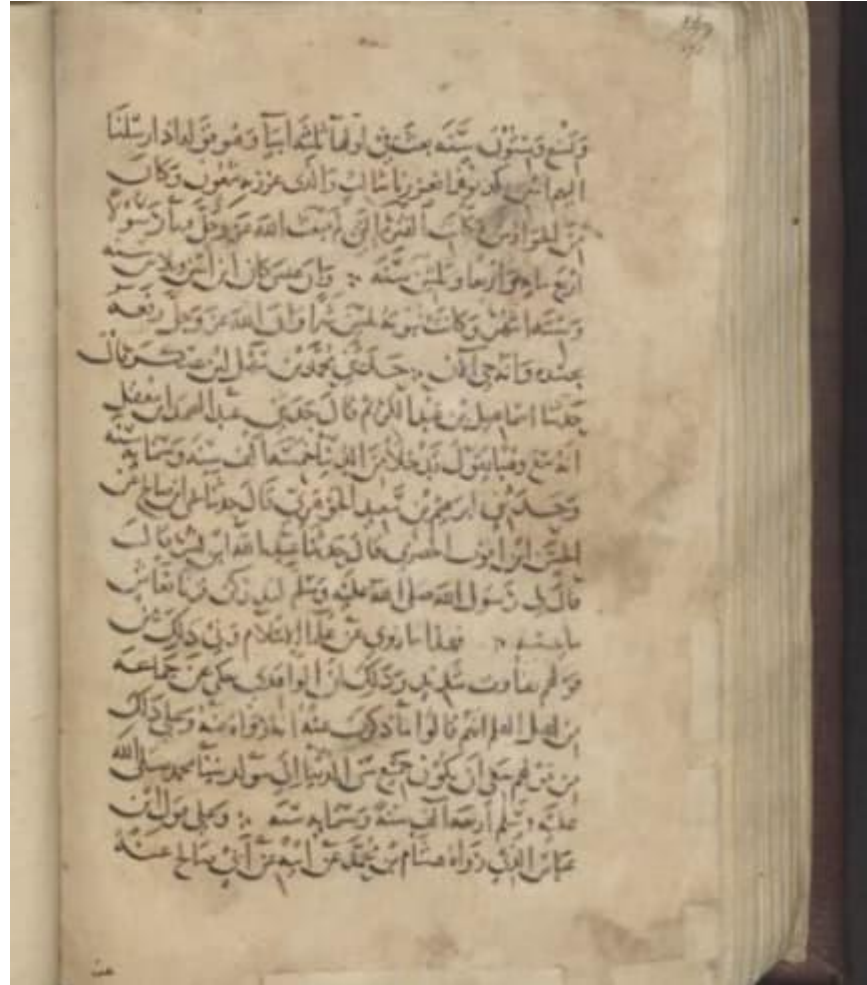 وتسع وستون سنة بعث في اولها ثلثة انبيا وهو قوله اذ ارسلنا
اليهم اثنين فكذبوهما فعززنا بثالث والذي عزز به شمعون وكان
من الحواريين وكانت الفترة التي لم يبعث الله عز وجل فيها رسولا
اربع مايه واربعا وثلثين سنة وان عيسى كان ابن اثنتين وثلاثين سنه
وستة اشهر وكانت نبوته ثلثين شهرا وان الله عز وجل رفعه
بجسده وانه حي الان حدثني محمد بن سهل ابن عسكر قال
حدثنا اسماعيل بن عبد الكريم قال حدثني عبد الصمد ابن معقل
انه سمع وهبا يقول قد خلا من الدنيا خمسة الف سنة وستمايه سنه
وحدثني ابرهيم بن سعيد الجوهري قال حدثنا يحيى ابن صالح عن
الحسن ابن ايوب الحضرمي قال حدثنا عبد الله ابن بسر قال
قال لي رسول الله صلى الله عليه وسلم لتدركن قرنا فعاش
مايه سنه فهذا ما روي عن علما الاسلام وفي ذلك من
قولهم تفاوت شديد وذلك ان الواقدي حكى عن جماعه
من اهل العلم انهم قالوا ما ذكرت عنه انه رواه عنهم وعلى ذلك
من قولهم ينبغي ان يكون جميع سني الدنيا الى مولد نبينا محمد صلى الله
عليه وسلم اربعة الف سنة وستمايه سنه وعلى قول ابن
عباس الذي رواه هشام بن محمد عن ابيه عن ابي صالح عنه